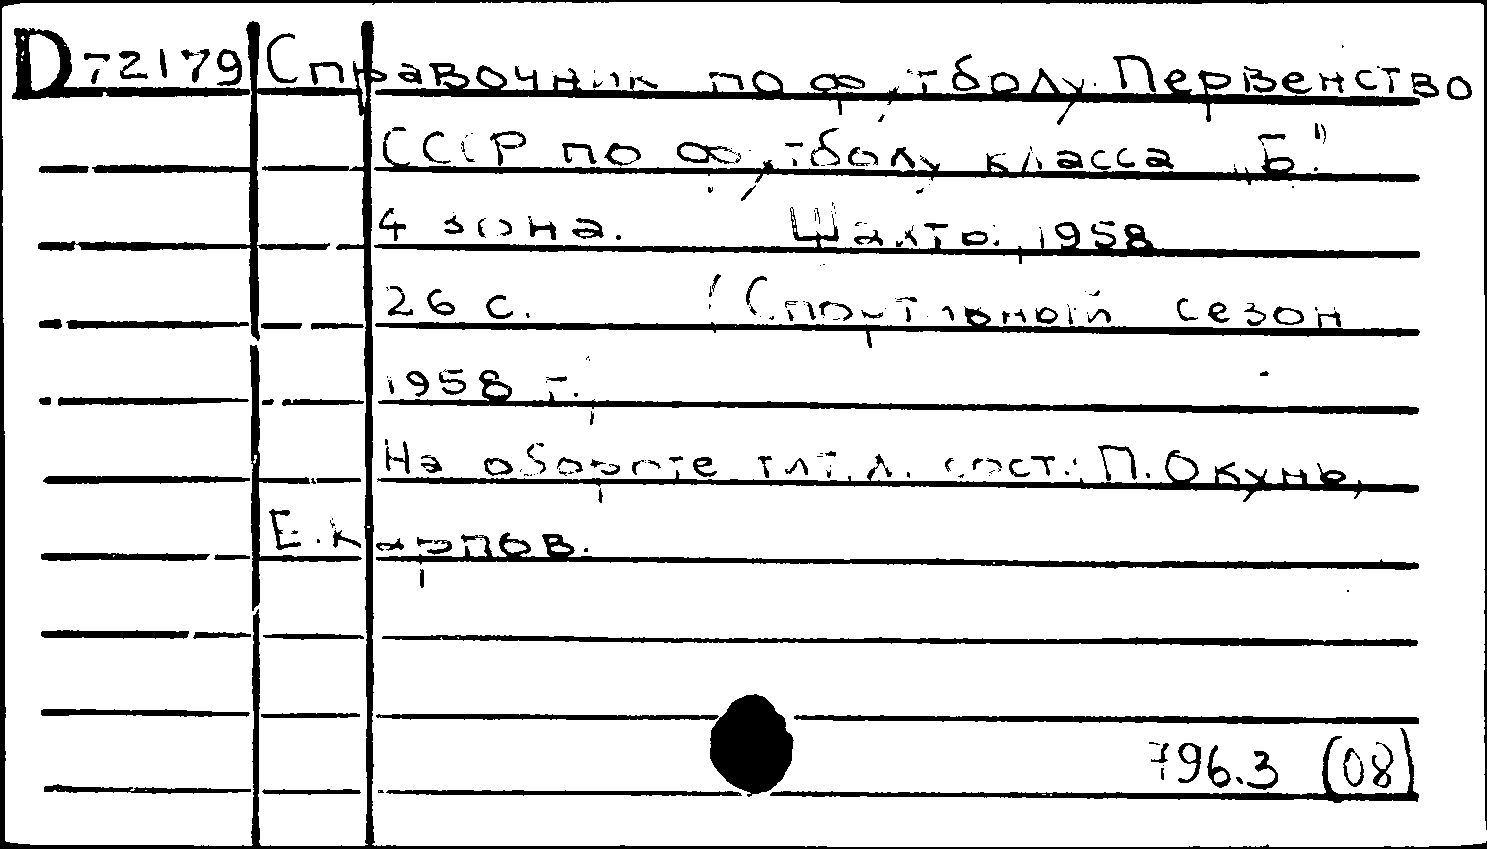 D72179 Справочник по футболу. Первенство
СССР по футболу класса „Б."
4 зона. 1958
26 с. (Спортивный сезон
1958 г.
На обороте тит. л. сост.: П. Окунь,
Е. Карпов.
796.3 (08)